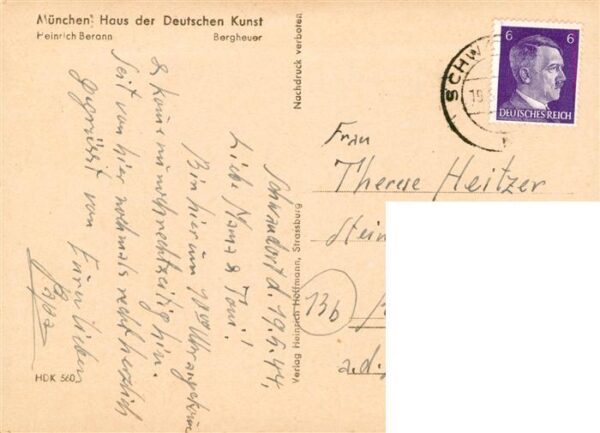 München, Haus der Deutschen Kunst
Heinrich Berann Bergheuer
Nachdruck verboten
Verlag Heinrich Hoffmann, Strassburg
HDK 560
SCHW
19
6 6
DEUTSCHES REICH
Frau
Therese Heitzer
Stein
13b
a.d.
Schwandorf d. 19.5.44,
Liebe Mama & Toni!
Bin hier um 10 Uhr
& komme noch rechtzeitig hin.
Seit von hier nochmals recht herzlich
gegrüsst von Euren lieben
Papa